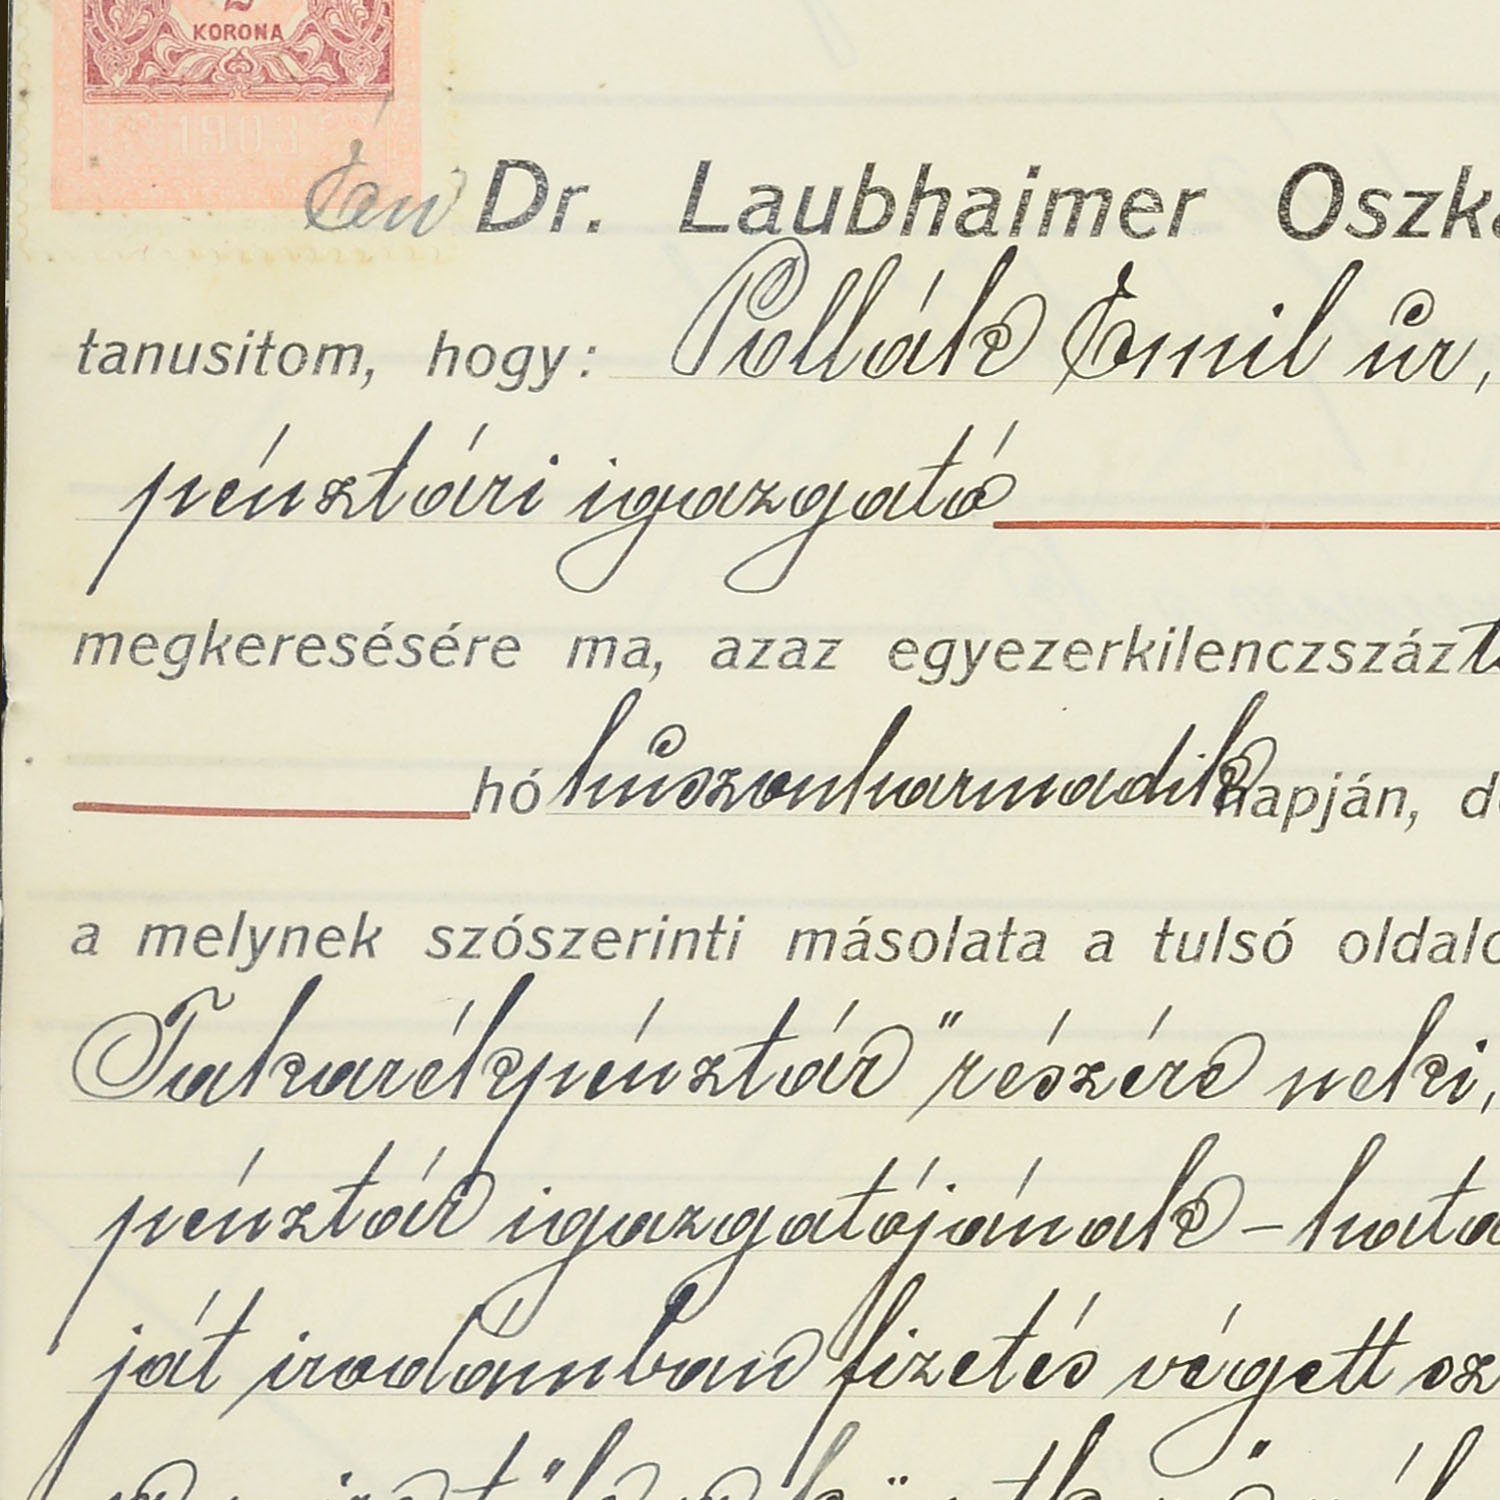 KORONA
1903
Én Dr. Laubhaimer Oszká
tanusitom, hogy: Pollák Emil úr,
pénztári igazgató
megkeresésére ma, azaz egyezerkilenczszázt
hó húszonharmadik napján, d
a melynek szószerinti másolata a tulsó oldalo
Takarékpénztár" részére neki,
pénztár igazgatójának - hata
ját irodámban fizetés végett sz